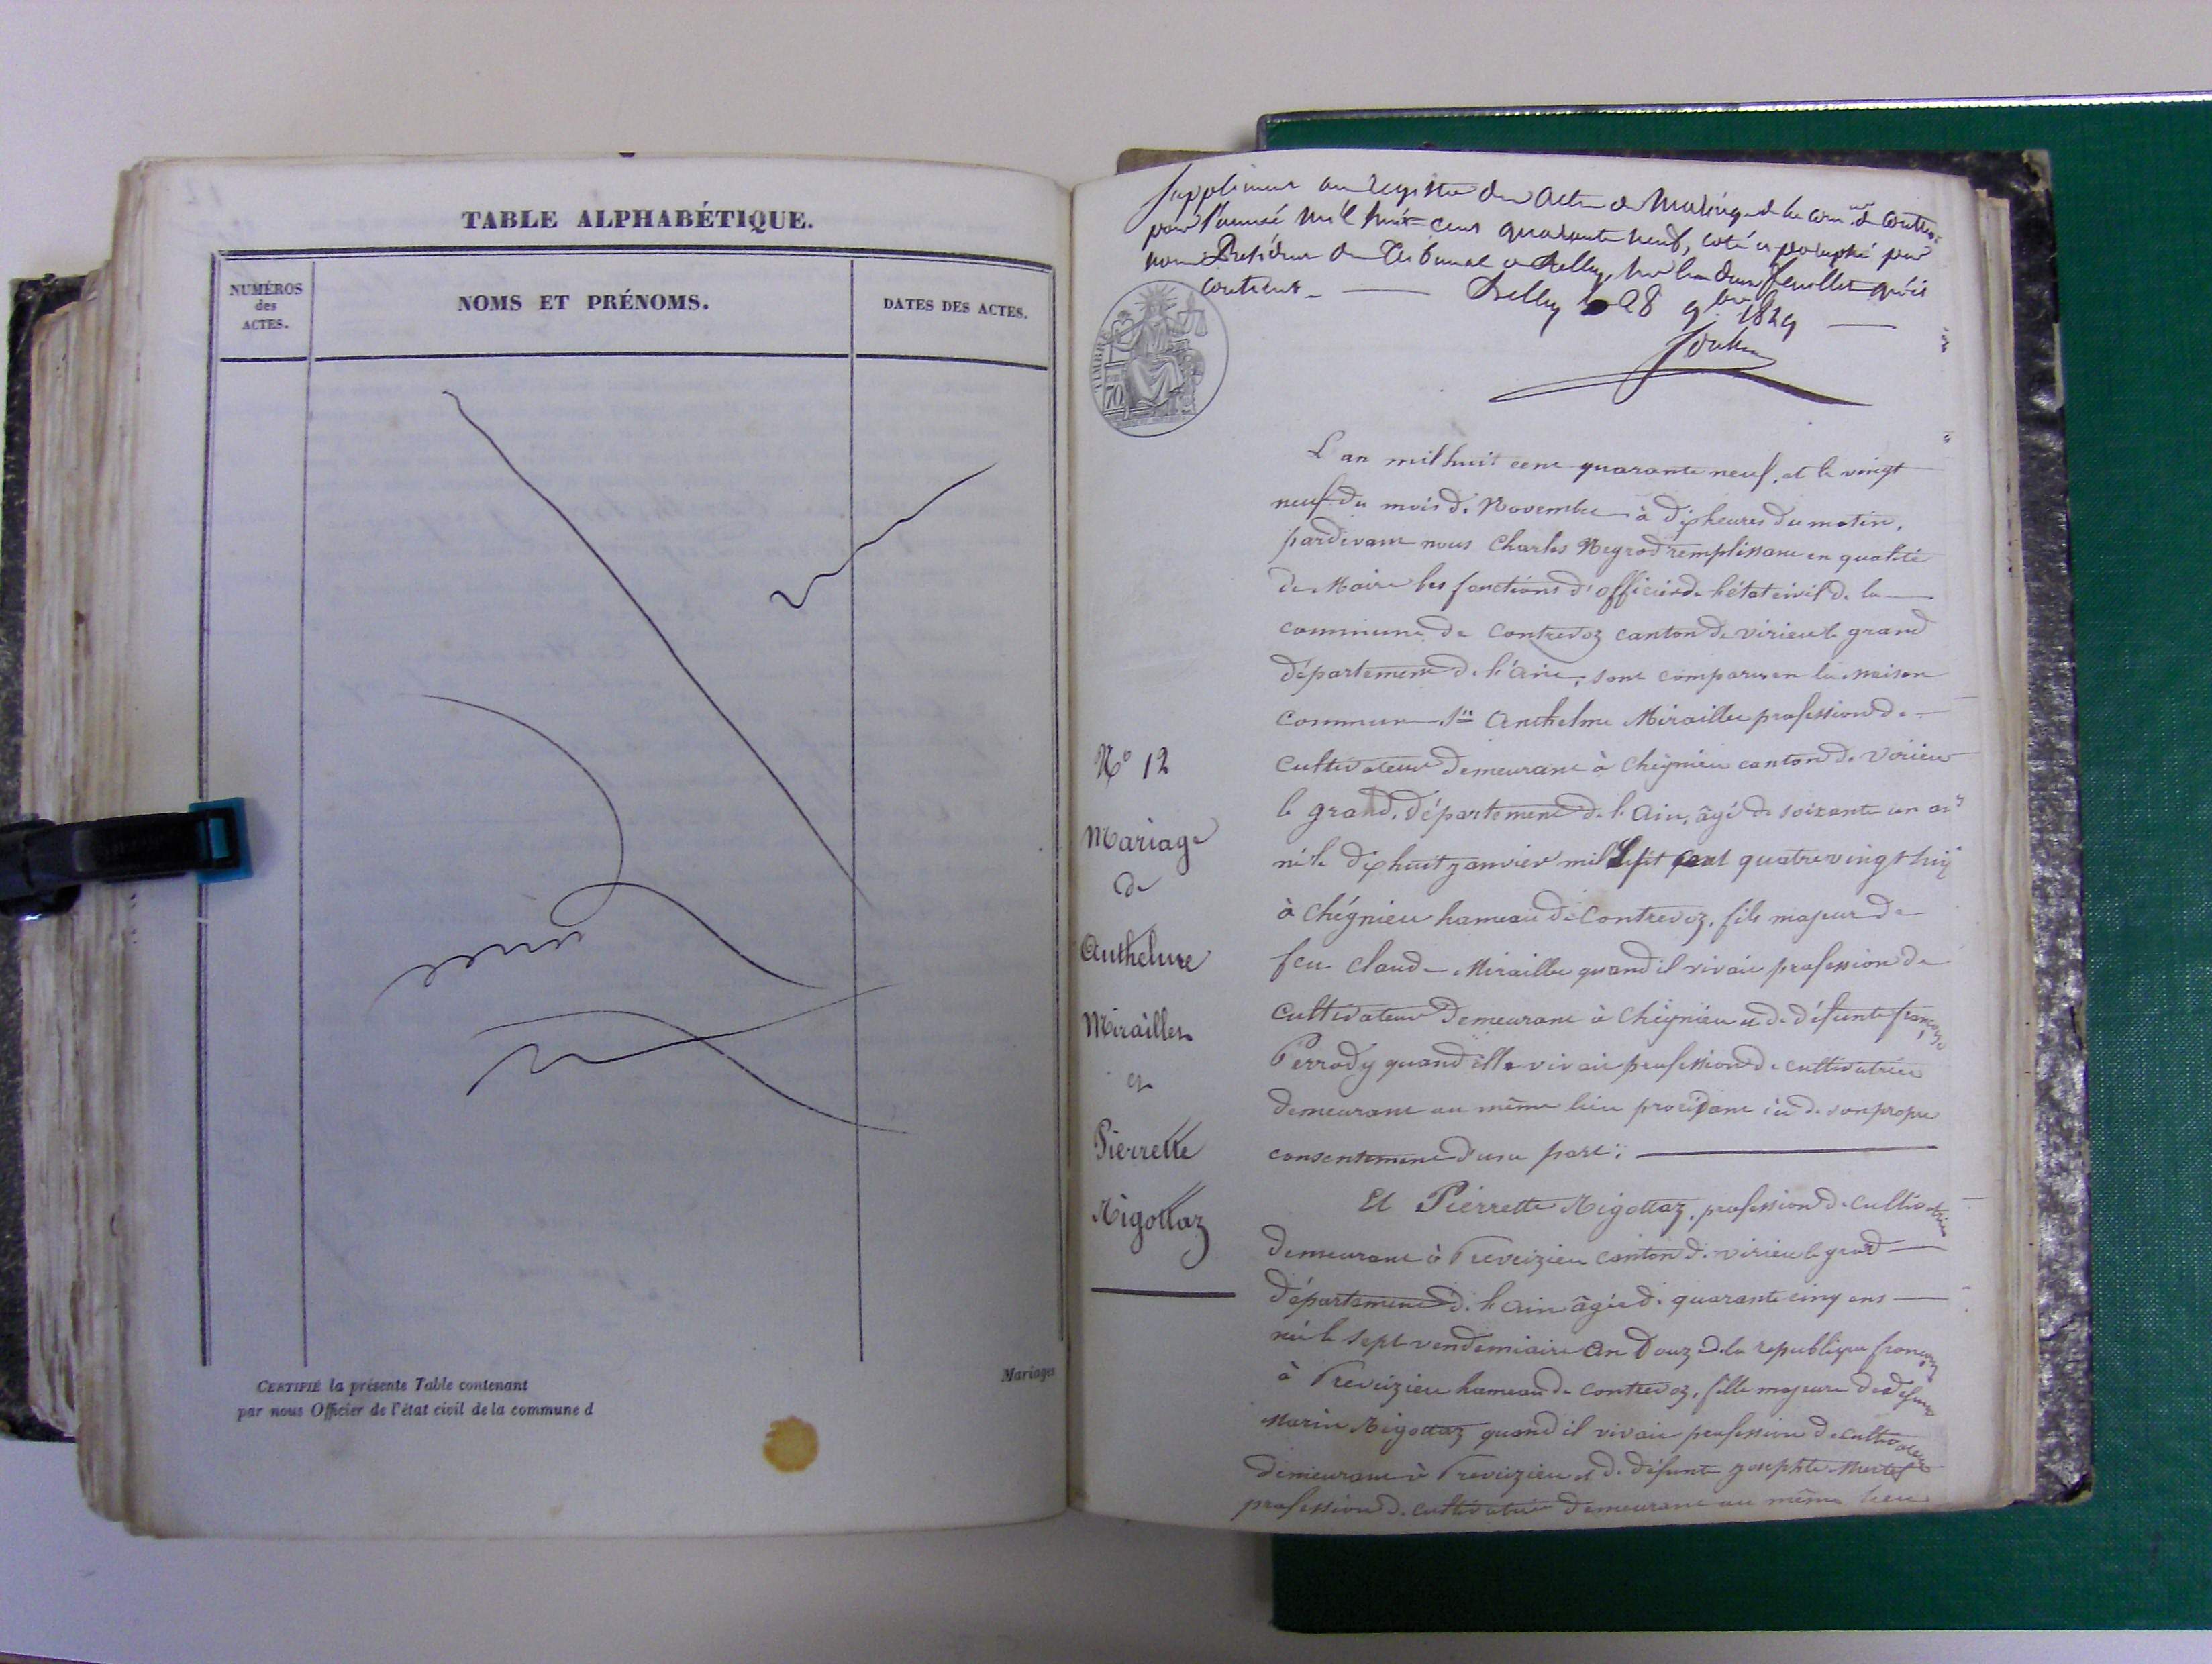 TABLE ALPHABÉTIQUE.
NUMÉROS
des
ACTES.
NOMS ET PRÉNOMS.
DATES DES ACTES.
CERTIFIÉ la présente Table contenant
par nous Officier de l'état civil de la commune d
Mariages
Supplément au registre des actes de Mariage de la com.ne de Contrevoz
pour l'année mil huit cent quarante neuf, coté et paraphé par
nous Président du Tribunal de Belley, sur les deux feuillets qu'il
contient. Belley le 28 9bre 1849
TIMBRE
70
L'an mil huit cent quarante neuf, et le vingt
neuf du mois de Novembre à dix heures du matin,
pardevant nous Charles Neyrod remplissant en qualité
de Maire les fonctions d'officier de l'état civil de la
commune de Contrevoz canton de virieu le grand
département de l'ain, sont comparus en la maison
commune sr Anthelme Miraillet profession de
cultivateur demeurant à Cheignieu canton de Virieu
le grand, département de l'Ain, âgé de soixante un ans
né le dix huit janvier mil sept cent quatre vingt huit
à Chégnieu hameau de Contrevoz, fils majeur de
feu claude Miraillet quand il vivait profession de
cultivateur demeurant à Cheignieu et de défunte françoise
Perrody quand elle vivait profession de cultivatrice
demeurant au même lieu procédant ici de son propre
consentement d'une part;
Et Pierrette Rigottaz, profession de cultivatrice
demeurant à Preveizieu canton de virieu le grand
département de l'ain âgée de quarante cinq ans
née le sept vendemiaire an Douze de la republique française
à Preveizieu hameau de Contrevoz, fille majeure de defunt
Marin Rigottaz quand il vivait profession de cultivateur
demeurant à Preveizieu et de défunte josephte
profession de cultivatrice demeurant au même lieu
N° 12
Mariage
de
Anthelme
Miraillet
et
Pierrette
Rigottaz